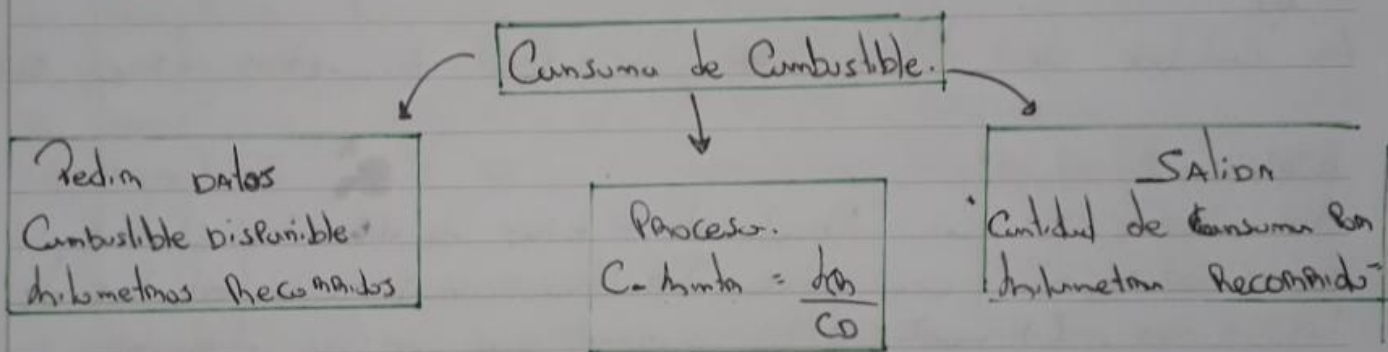 Consumo de Combustible.
Pedir DATOS
Combustible Disponible
kilometros Recorridos
Proceso.
C- =
CD
SALIDA
Cantidad de Consumo Por
kilometro Recorrido